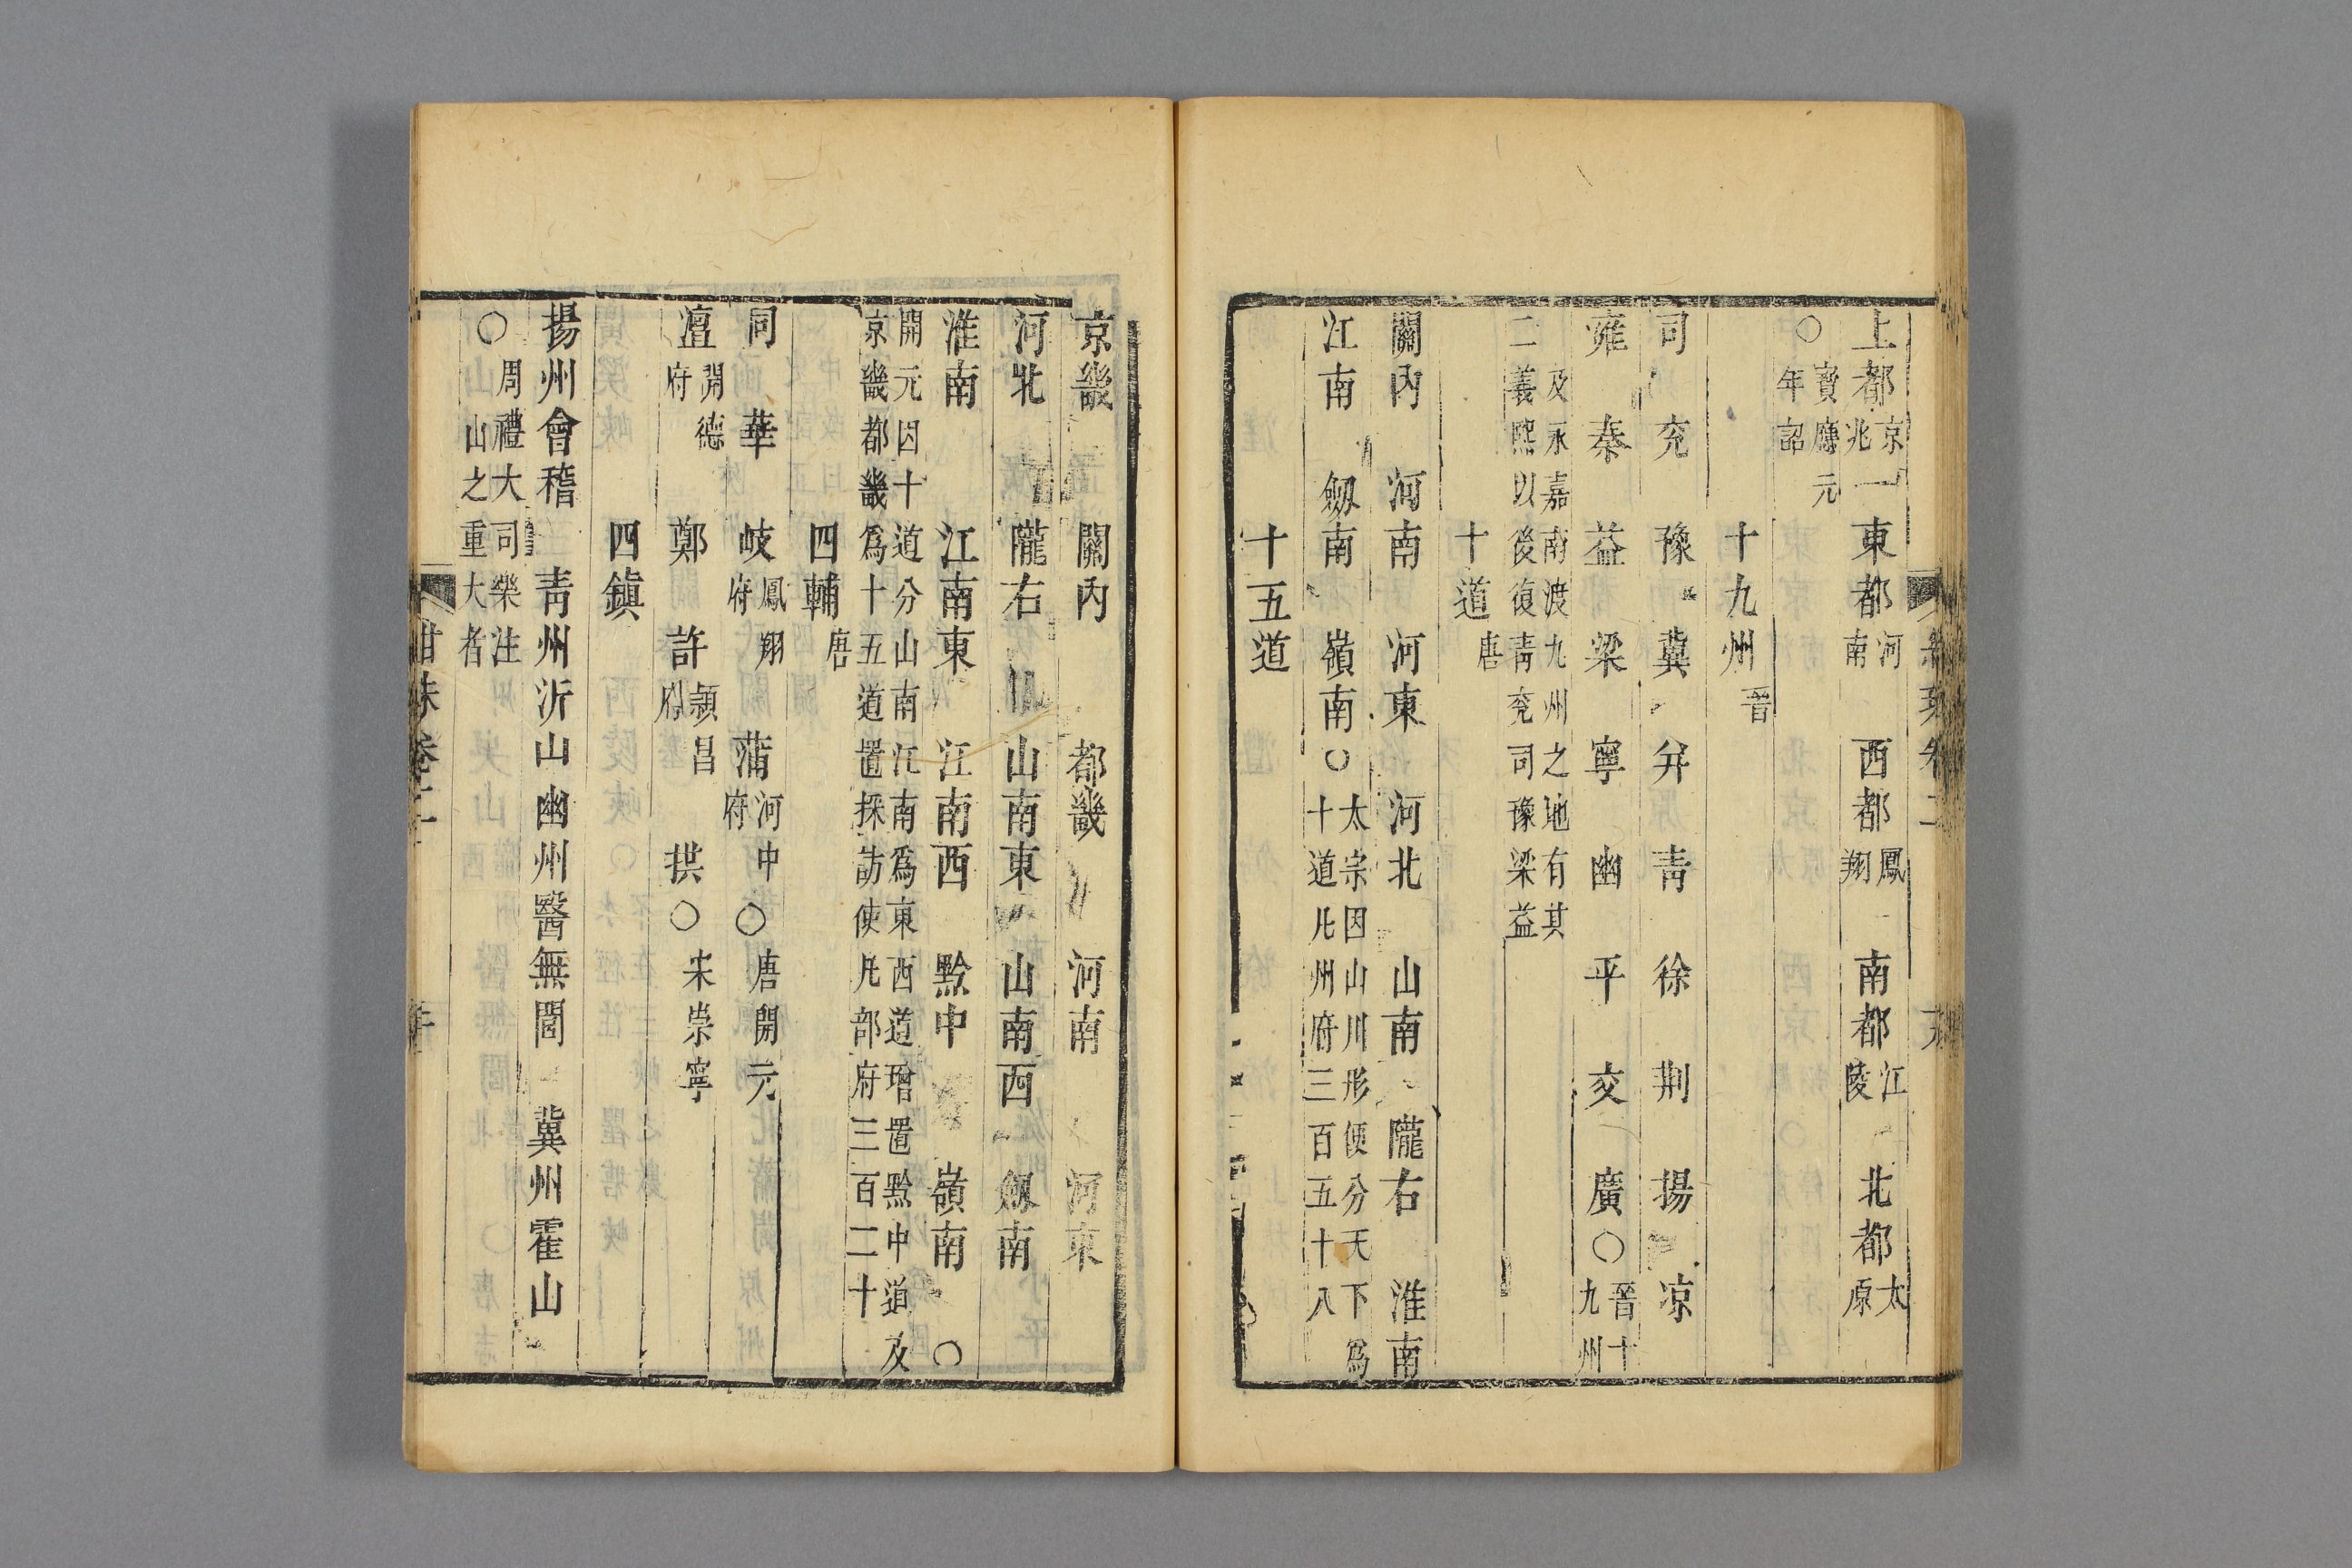 上都京兆一 東都河南 西都鳳翔 南都江陵 北都太原
〇寶應元年詔
十九州晉
司 兖 豫 冀 并 青 徐 荆 揚 凉
雍 秦 益 梁 寧 幽 平 交 廣〇晉十九州
及永嘉南渡九州之地有其
二義熙以後復青兖司豫梁益
十道唐
關内 河南 河東 河北 山南 隴右 淮南
江南 劔南 嶺南〇太宗因山川形便分天下爲十道凡州府三百五十八
十五道
京畿 關内 都畿 河南 河東
河北 隴右 山南東 山南西 劔南
淮南 江南東 江南西 黔中 嶺南 〇
開元因十道分山南江南爲東西道增置黔中道及
京畿都畿爲十五道置採訪使凡部府三百二十
四輔唐
同 華 岐鳳翔府 蒲河中府〇唐開元
澶開德府 鄭 許潁昌府 拱〇宋崇寧
四鎭
揚州會稽 青州沂山 幽州醫無閭 冀州霍山
〇周禮大司樂注山之重大者